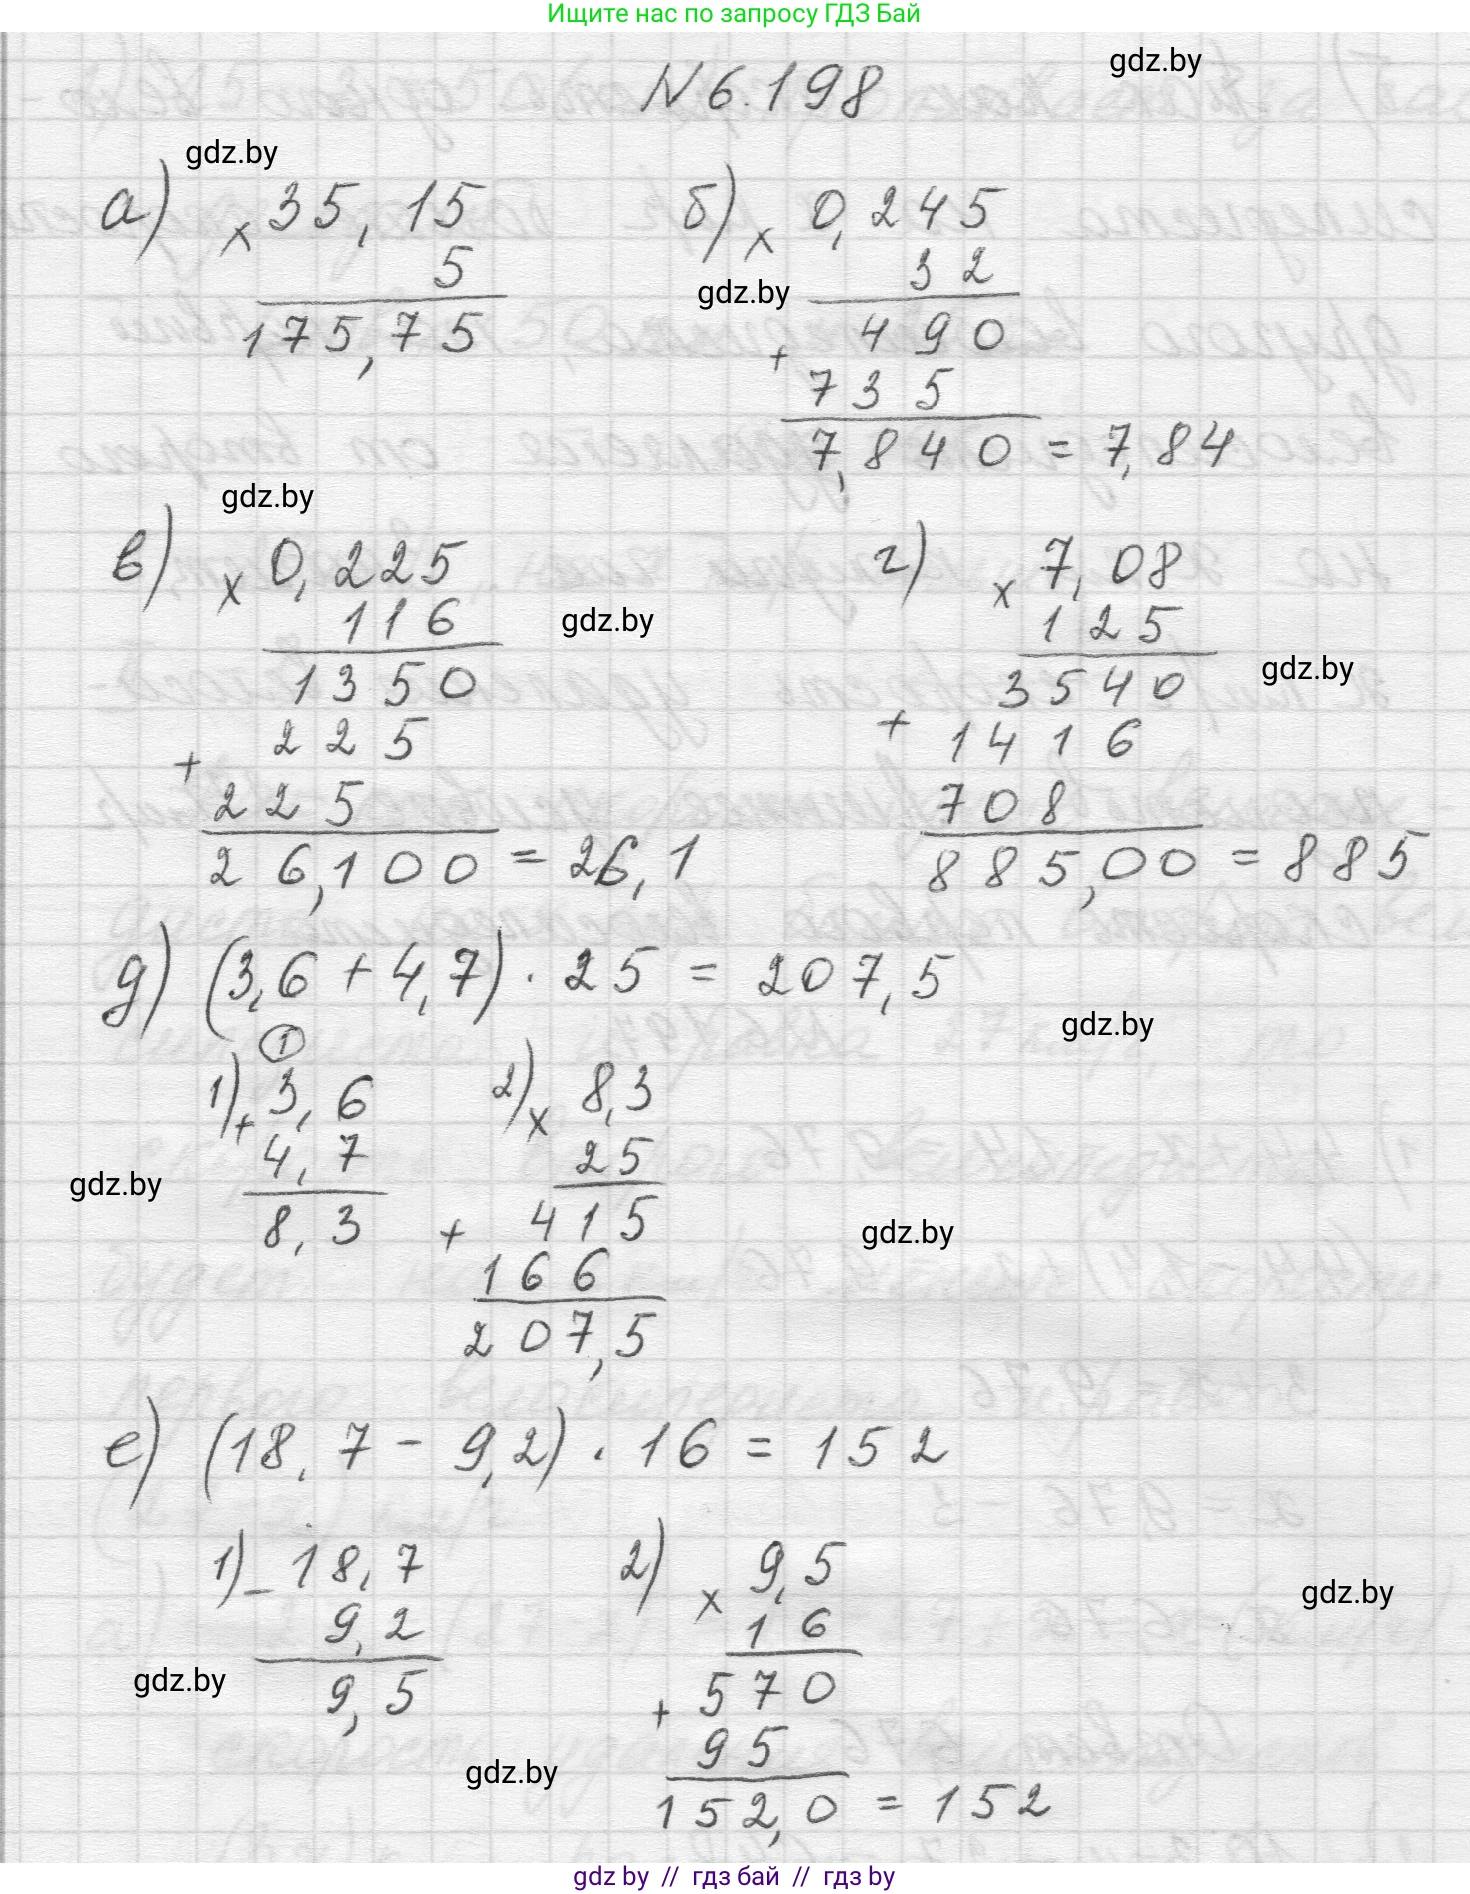 Ищите нас по запросу ГДЗ Бай
gdz.by
N 6.198
gdz.by
а) × 35,15
5
175,75
б) × 0,245
32
gdz.by
490
+
735
7,840 = 7,84
gdz.by
в) × 0,225
116
1350
225
+
225
26,100 = 26,1
gdz.by
г) × 7,08
125
3540
+ 1416
708
885,00 = 885
gdz.by
д) (3,6 + 4,7) · 25 = 207,5
1
gdz.by
1) + 3,6
4,7
8,3
gdz.by
2) × 8,3
25
+ 415
166
207,5
gdz.by
е) (18,7 - 9,2) · 16 = 152
1) - 18,7
9,2
9,5
gdz.by
2) × 9,5
16
+ 570
95
152,0 = 152
gdz.by
gdz.by
gdz by // гдз бай // гдз by